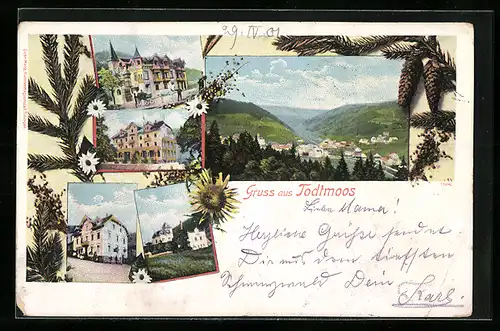 29. IV. 01
Gruss aus Todtmoos
Liebe Mama!
Herzliche Grüße sendet
Dir aus dem tiefsten
Schwarzwald Dein Karl.